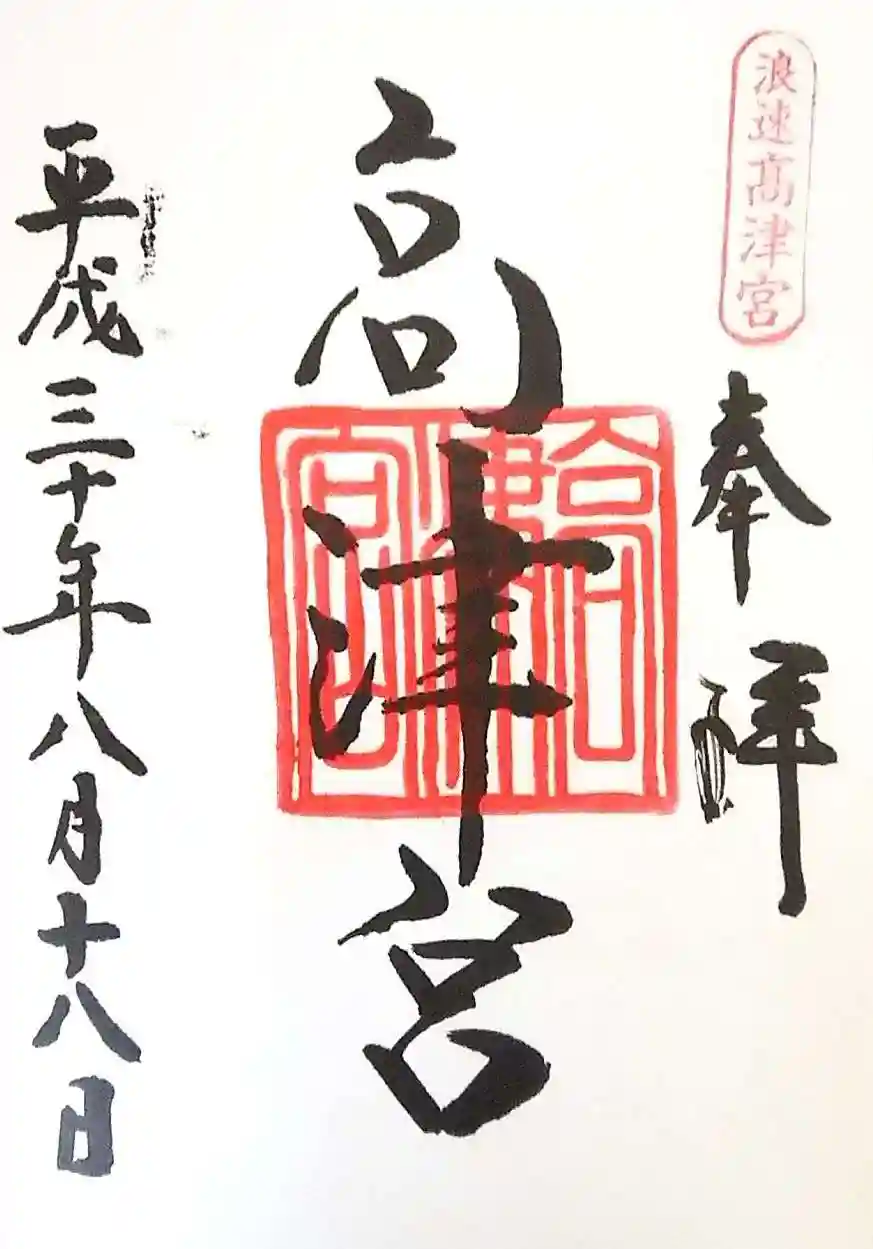 浪速高津宮
奉拝
高津宮
高津宮
平成三十年八月十八日